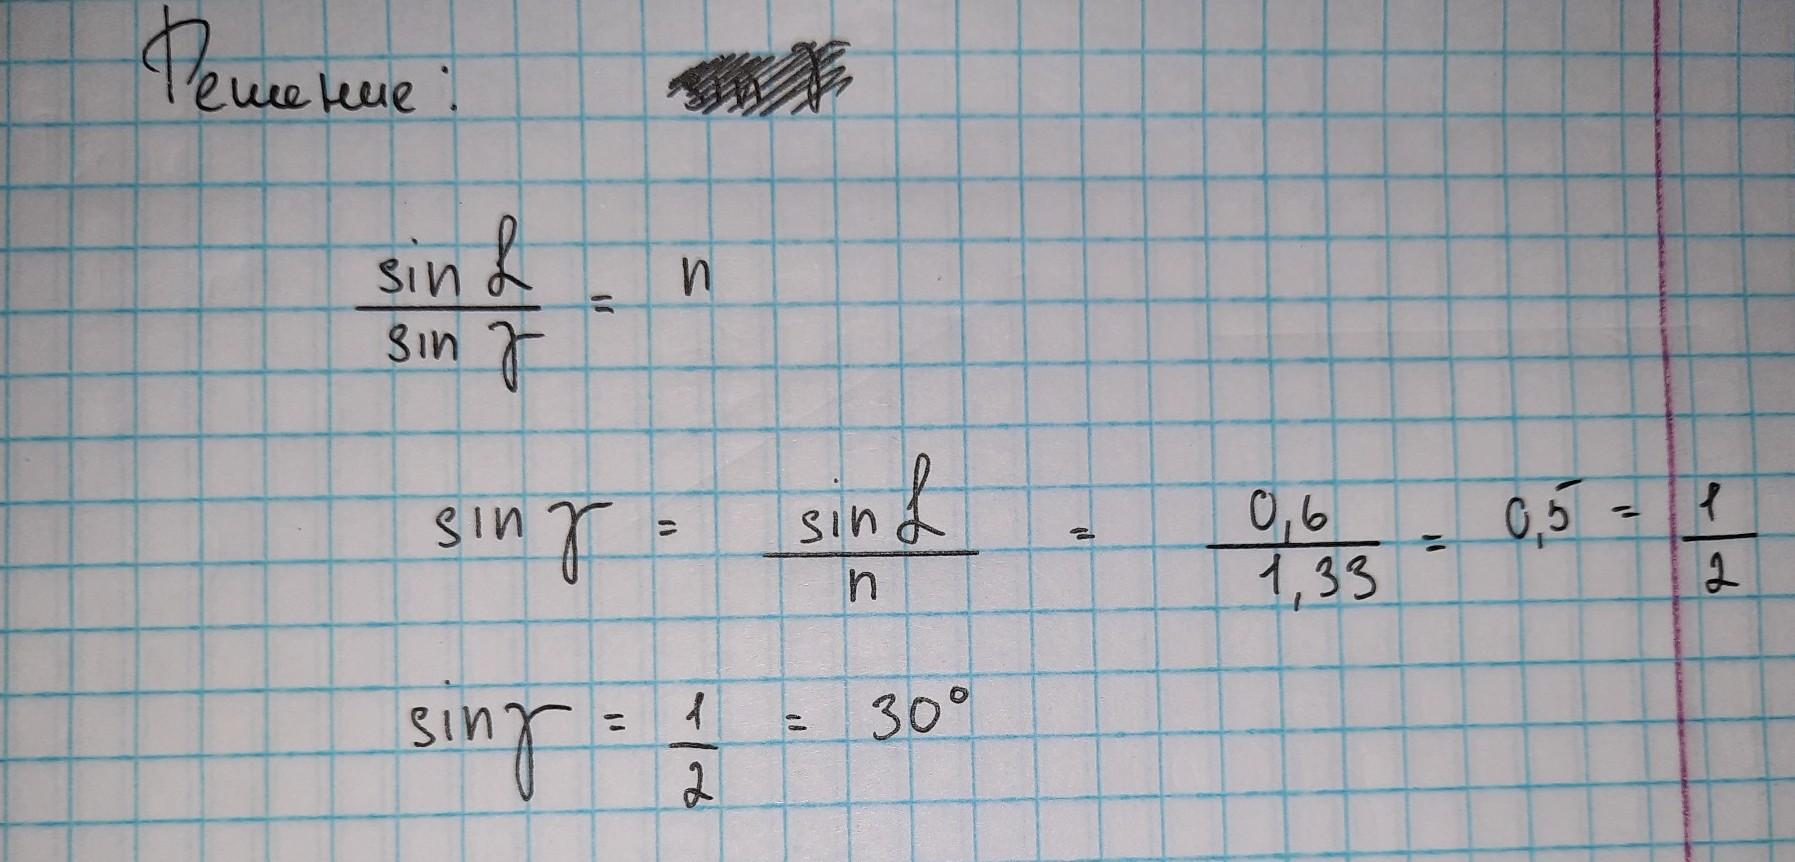 Решение:
sin α / sin γ = n
sin γ = sin α / n = 0,6 / 1,33 = 0,5 = 1/2
sin γ = 1/2 = 30°